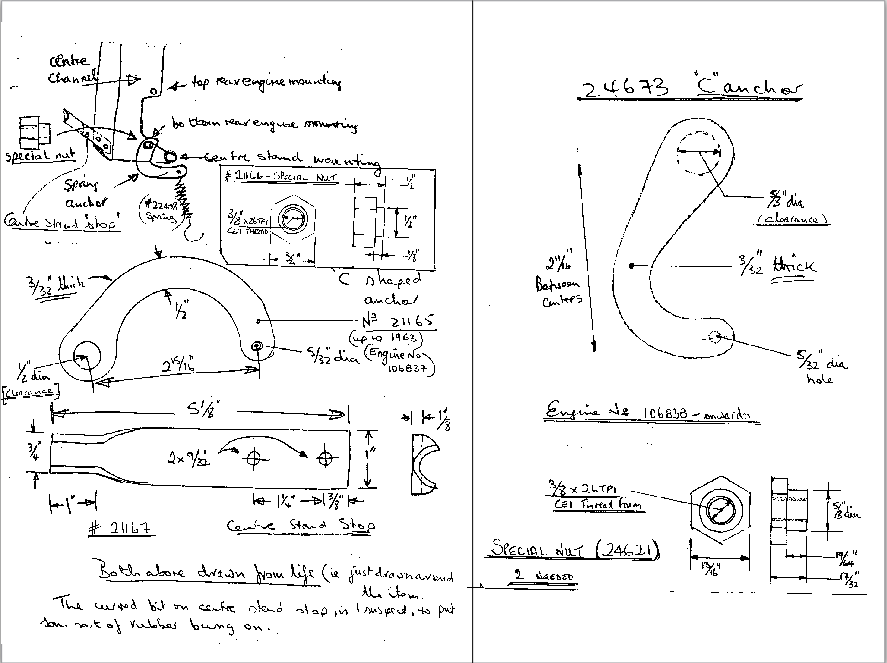 Centre
Channel
top rear engine mounting
bottom rear engine mounting
special nut
centre stand mounting
Spring
anchor
(#22448
Spring)
Centre stand 'stop'
# 21166 - SPECIAL NUT
3/8 x 26TPI
CEI THREAD
1/2"
3/32" thick
1/2"
C shaped
anchor
No 21165
(up to 1963)
(Engine No
106837)
5/32 dia
1/2" dia
[clearance]
2 15/16"
5 1/8"
3/4"
2 x 9/32"
1"
1"
1 1/4"
3/8"
# 21167
Centre Stand Stop
Both above drawn from life (ie just drawn around
the item.
The curved bit on centre stand stop, is I suspect, to put
some sort of rubber bung on.
24673 "C" anchor
dia
(clearance)
2 11/16"
Between
centers
3/32" thick
5/32" dia
hole
Engine No 106838 - onwards
3/8 x 26TPI
CEI Thread form
SPECIAL NUT (24621)
2 NEEDED
13/16"
dia
17/32"